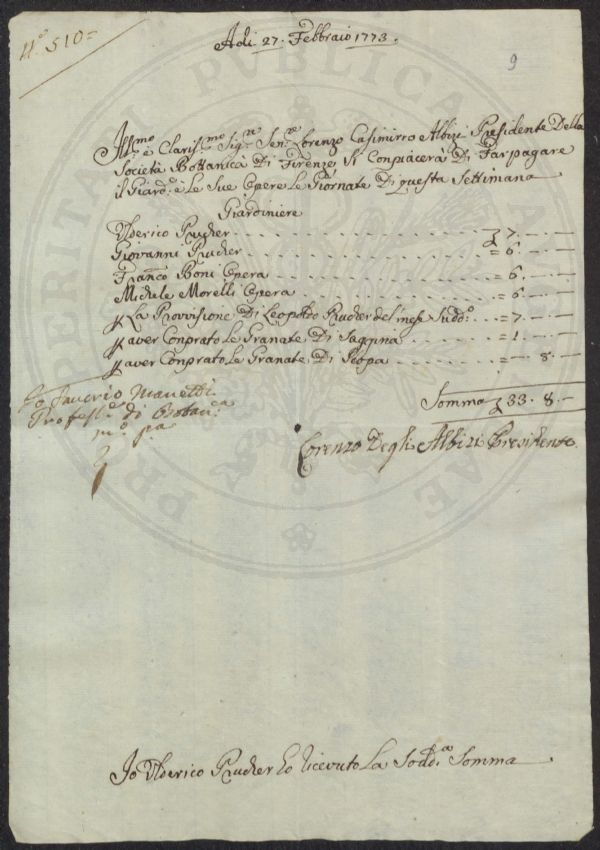 N.° 510=
Adi 27. Febbraio 1773.
9
Ill.mo e Claris.mo Sig.re Sen.re Lorenzo Casimirro Albizi Presidente Della
Società Bottanica Di Firenze Si Conpiacerà Di Far pagare
il Giard.e e Le Sue Opere Le Giornate Di questa Settimana
Giardiniere
Ulderico Prucher 7.
Giovanni Prucher = 6.
Franc.o Boni Opera = 6.
Michele Morelli Opera = 6.
p La Provisione Di Leopoldo Prucher del mese Sud.o = 7.
p aver Conprato Le Granate Di Saggina = 1.
p aver Conprato Le Granate Di Scopa = 8.
Somma 33. 8.
Io Saverio Manetti
Profess.e di Botan.ca
m.o p.a
Lorenzo Degli Albizi Presidente
Io Ulderico Prucher ho ricevuto La Sodd.a Somma
PRO PUBLICAE